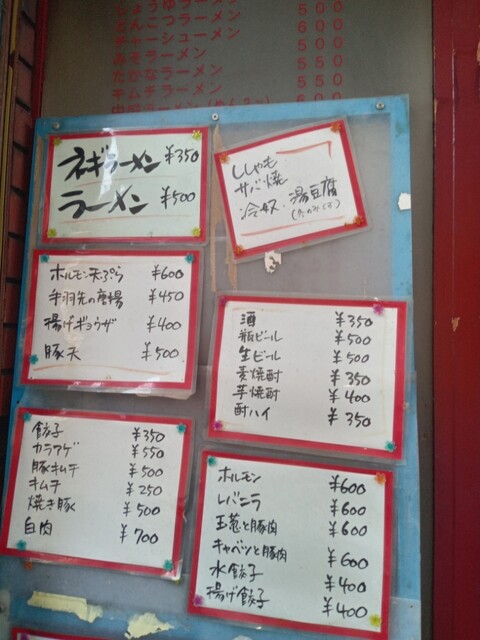 しょうゆラーメン 500
とんこつラーメン 500
チャーシューメン 600
みそラーメン 500
たかなラーメン 550
キムチラーメン 550
ラーメン 600
ネギラーメン ¥350
ラーメン ¥500
ししゃも
サバ焼
冷奴・湯豆腐
(冬のみです)
ホルモン天ぷら ¥600
手羽先の唐揚 ¥450
揚げギョウザ ¥400
豚天 ¥500
酒 ¥350
瓶ビール ¥500
生ビール ¥500
麦焼酎 ¥350
芋焼酎 ¥400
酎ハイ ¥350
餃子 ¥350
カラアゲ ¥550
豚キムチ ¥500
キムチ ¥250
焼き豚 ¥500
白肉 ¥700
ホルモン ¥600
レバニラ ¥600
玉葱と豚肉 ¥600
キャベツと豚肉 ¥600
水餃子 ¥400
揚げ餃子 ¥400